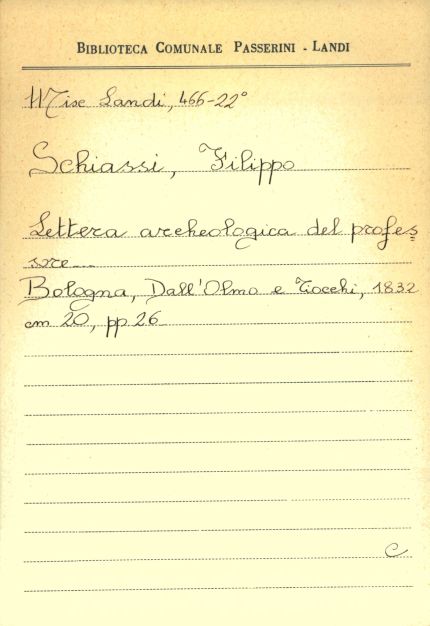 BIBLIOTECA COMUNALE PASSERINI - LANDI
Misc Landi, 466-22°
Schiassi, Filippo
Lettera archeologica del profes=
sore...
Bologna, Dall'Olmo e Tiocchi, 1832
cm 20, pp 26
C